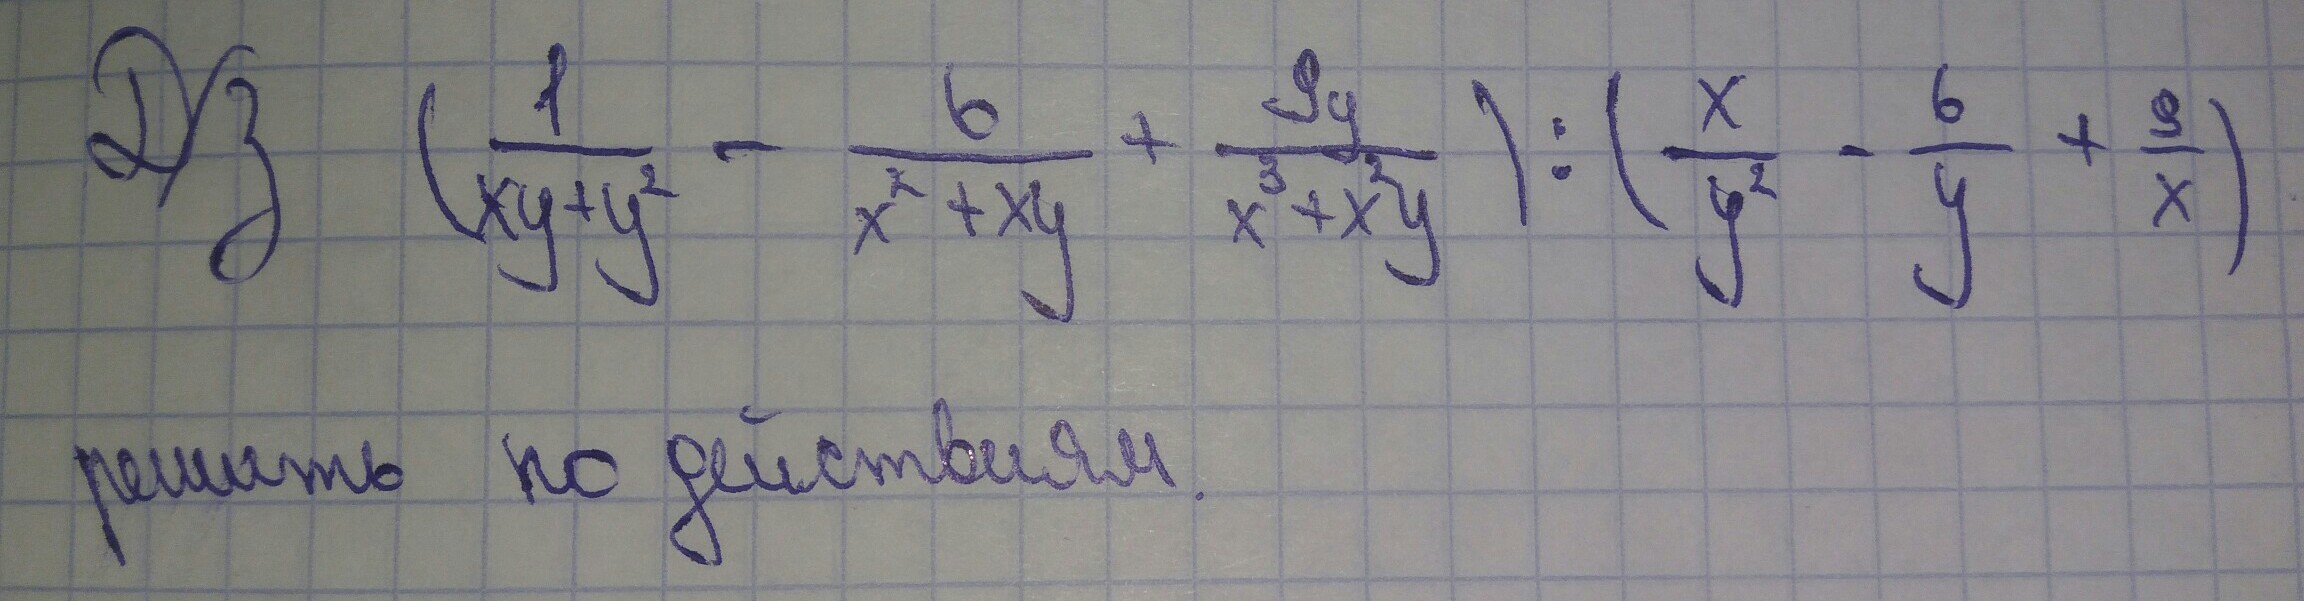 Д/з (1/(xy+y²) - 6/(x²+xy) + 9y/(x³+x²y)) : (x/y² - 6/y + 9/x)
решить по действиям.